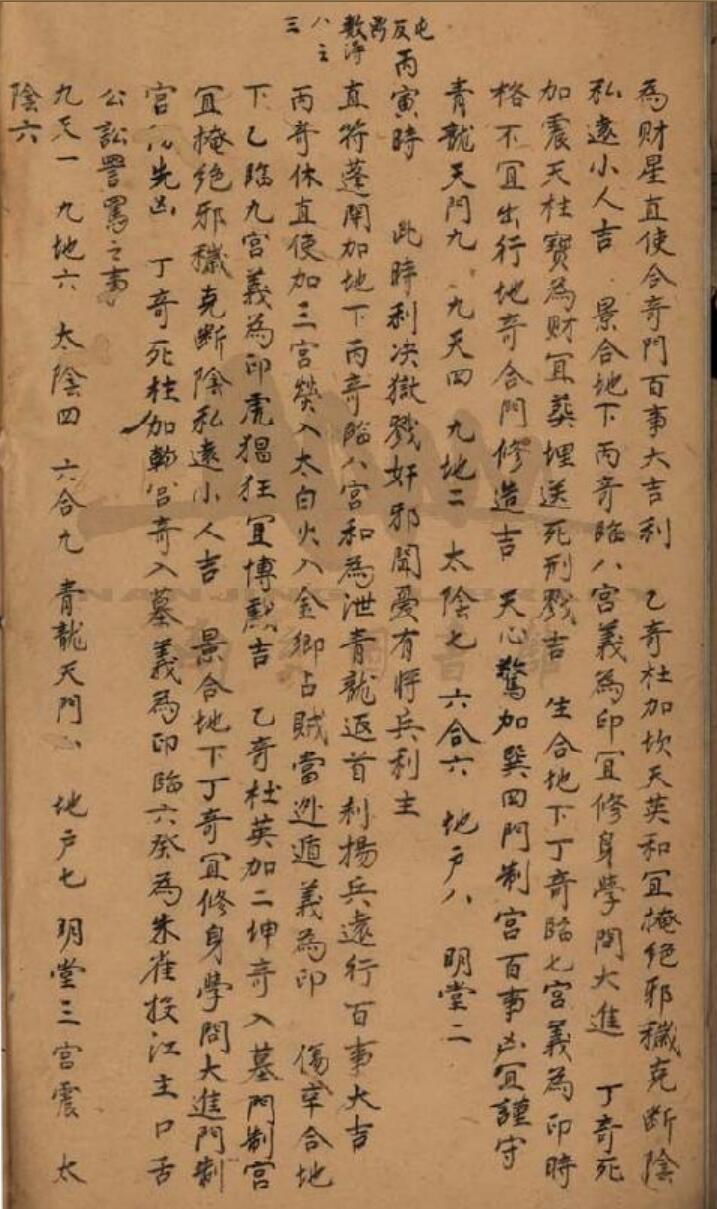 為财星直使合奇門百事大吉利　乙奇杜加坎天英和冝掩絕邪穢克断陰
私遠小人吉　景合地下丙奇臨八宮義為印冝修身學問大進　丁奇死
加震天柱寶為财冝葬埋送死刑戮吉　生合地下丁奇臨七宮義為印時
格不冝出行地奇合門修造吉　天心驚加巽四門制宮百事凶冝謹守
青龍天門九　九天四　九地二　太陰七　六合六　地户八　明堂二
丙寅時　此時利决獄戮奸邪聞憂有將兵利主
直符蓬開加地下丙奇臨八宮和為泄青龍返首利揚兵遠行百事大吉
丙奇休直使加三宮熒入太白火入金鄉占賊當迯遁義為印　傷莘合地
下乙臨九宮義為印虎猖狂冝博戲吉　乙奇杜英加二坤奇入墓門制宮
冝掩絕邪穢克断陰私遠小人吉　景合地下丁奇冝修身學問大進門制
宮先凶　丁奇死柱加乾宮奇入墓義為印臨六癸為朱雀投江主口舌
公訟詈罵之事
九天一　九地六　太陰四　六合九　青龍天門　地户七　明堂三宮震　太
陰六
反
數
八
三